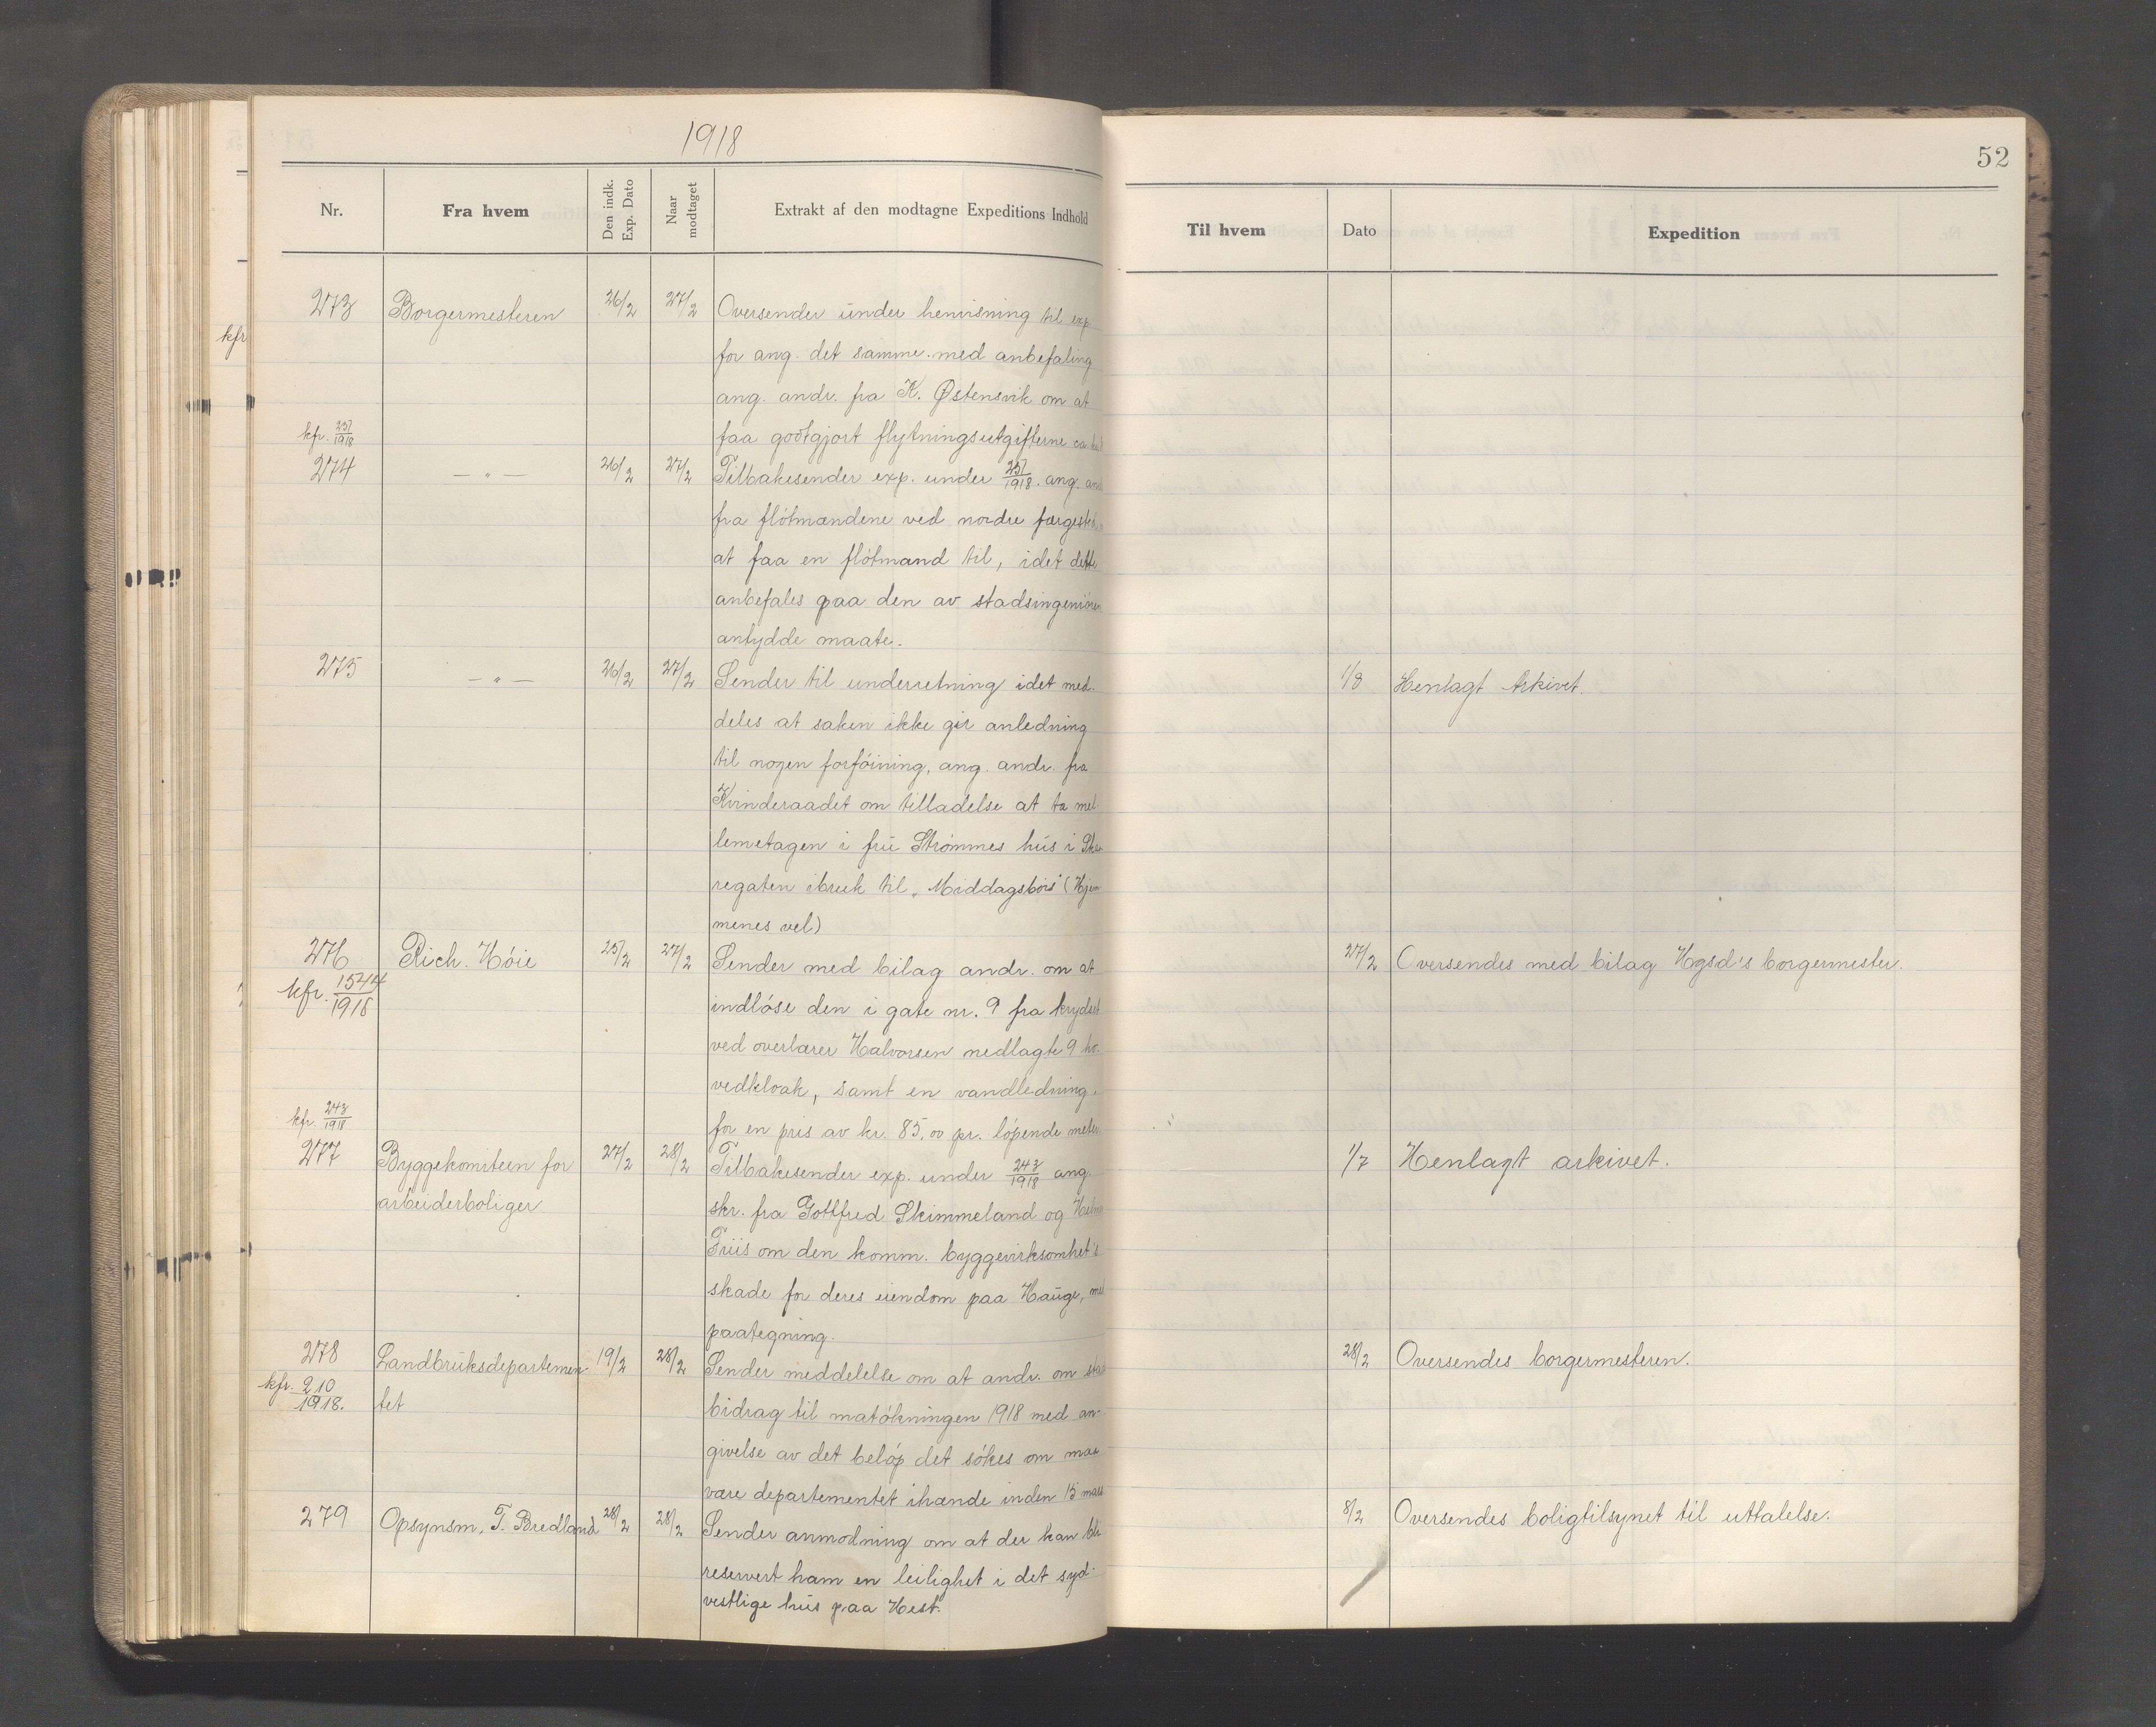 1918
Nr. Fra hvem Den indk. Exp. Dato Naar modtaget Extrakt af den modtagne Expeditions Indhold
273 Borgermesteren 26/2 27/2 Oversender under henvisning til exp
for ang. det samme. med anbefaling
ang. andr. fra K. Østensvik om at
kfr. 257/1918 faa godtgjort flytningsutgifterne
274 — " — 26/2 27/2 Tilbakesender exp. under 257/1918. ang.
fra flótmændene ved nordre
at faa en flótmand til, idet dette
anbefales paa den av
antydde maate.
275 — " — 26/2 27/2 Sender til underretning idet med-
deles at saken ikke gir anledning
til nogen forfóining, ang. andr. fra
Kvinderaadet om tilladelse at ta mel-
lemetagen i fru Strómmes hus i
regaten ibruk til "Middagsbórs" (Hjem
menes vel)
276 Rich. Hóie 25/2 27/2 Sender med bilag andr. om at
kfr. 1544/1918 indlóse den i gate nr. 9 fra krydset
ved overlærer Halvorsen nedlagte 9 ho-
vedkloak, samt en vandledning.
kfr. 243/1918 for en pris av kr. 85,00 pr. lópende meter
277 Byggekomiteen for 27/2 28/2 Tilbakesender exp. under 243/1918 ang.
arbeiderboliger skr. fra Gotlfred Skimmeland og
Friis om den komm. byggevirksomhet's
skade for deres eiendom paa Hauge, med
paategning.
278 Landbruksdepartemen- 19/2 28/2 Sender meddelelse om at andr. om
kfr. 210/1918. tet bidrag til matókningen 1918 med an-
givelse av det belóp det sókes om maa
være departementet ihænde inden 15 mars
279 Opsynsm. T. Bredland 28/2 28/2 Sender anmodning om at der kan bli
reservert ham en leilighet i det syd-
vestlige hus paa Hest.
kfr
52
Til hvem Dato Expedition
1/8 Henlagt Arkivet.
27/2 Oversendes med bilag Hgsd's borgermester.
1/7 Henlagt arkivet.
28/2 Oversendes borgermesteren.
8/2 Oversendes boligtilsynet til uttalelse.